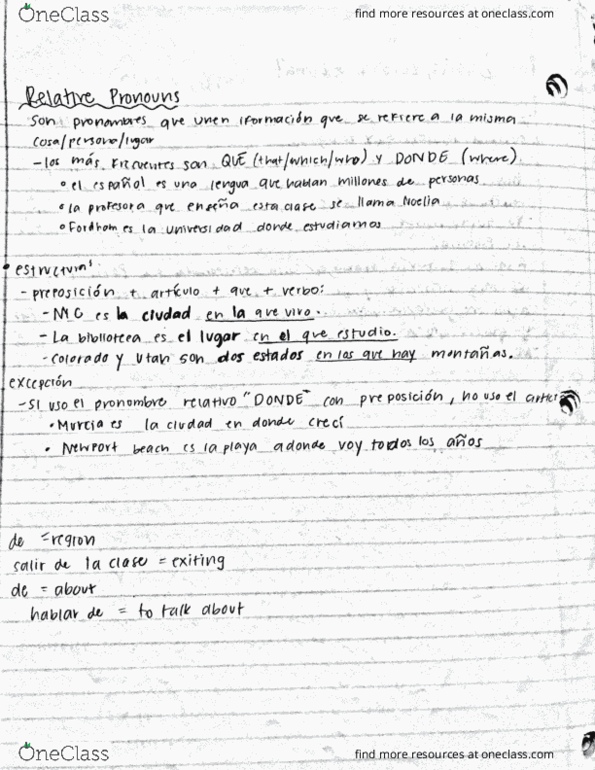 OneClass
find more resources at oneclass.com
Relative Pronouns
son pronombres que unen iformación que se refiere a la misma
cosa/persona/lugar
- los más frecuentes son QUE (that/which/who) y DONDE (where)
• el español es una lengua que hablan millones de personas
• la profesora que enseña esta clase se llama Noelia
• Fordham es la universidad donde estudiamos
• estructura:
- preposición + artículo + que + verbo:
- NYC es la ciudad en la que vivo.
- La biblioteca es el lugar en el que estudio.
- Colorado y Utah son dos estados en los que hay montañas.
excepción
- Si uso el pronombre relativo "DONDE" con preposición, no uso el
• Murcia es la ciudad en donde crecí
• Newport beach es la playa adonde voy tordos los años
de = region
salir de la clase = exiting
de = about
hablar de = to talk about
OneClass
find more resources at oneclass.com